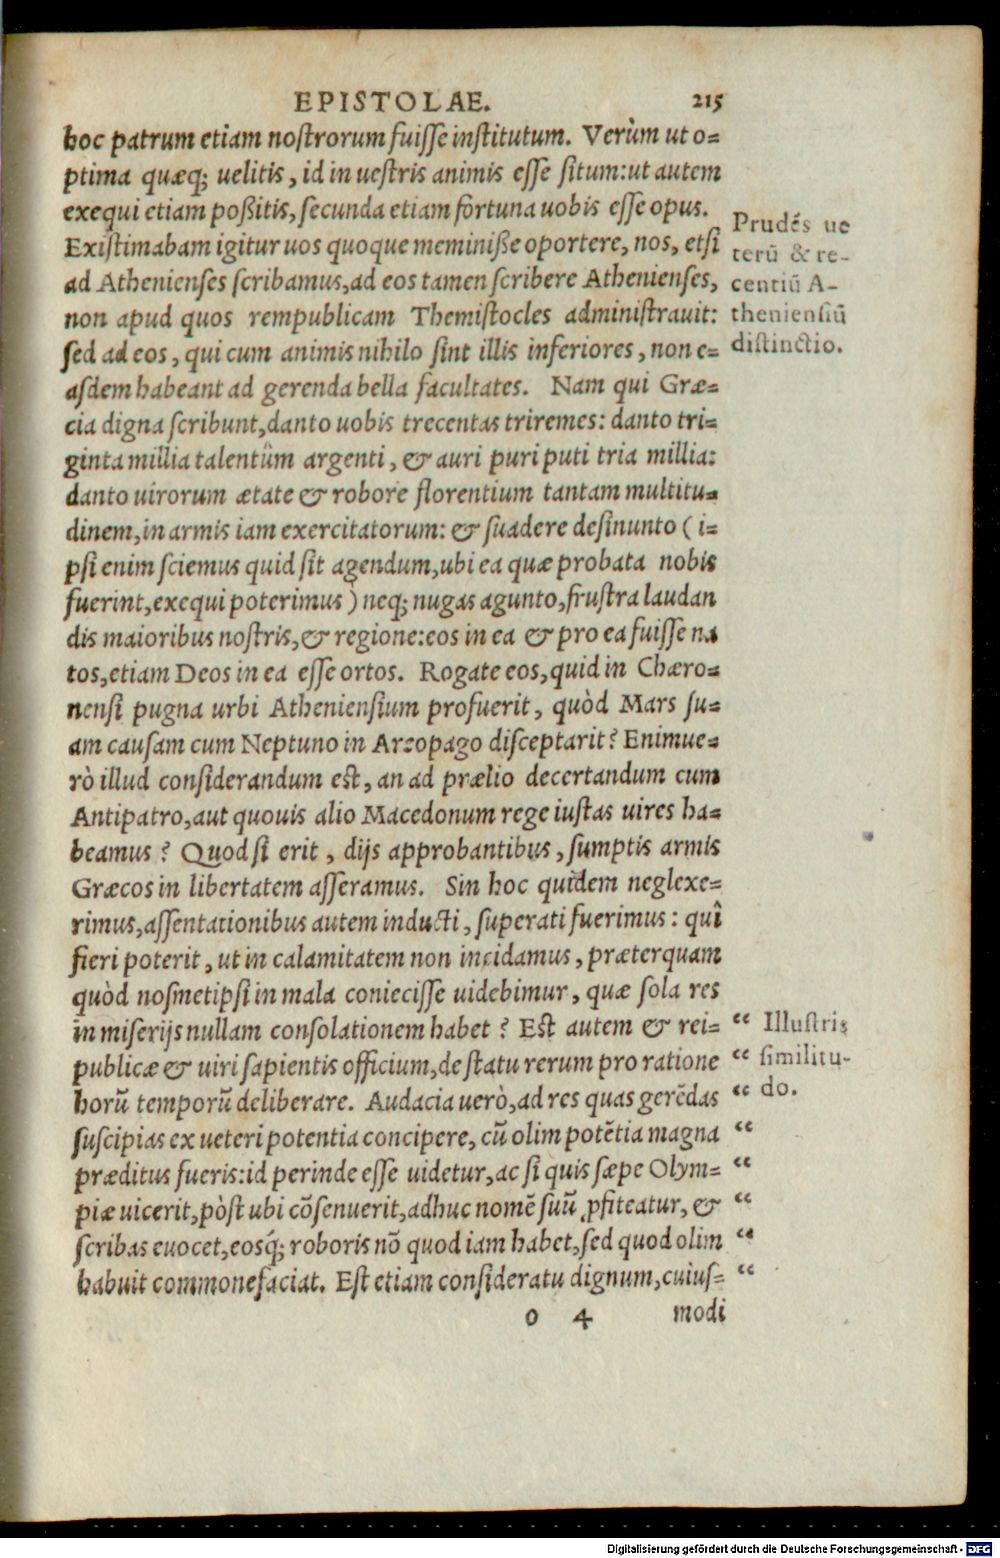 EPISTOLAE. 215
hoc patrum etiam nostrorum fuisse institutum. Verùm ut o=
ptima quæq; uelitis, id in uestris animis esse situm: ut autem
exequi etiam poßitis, secunda etiam fortuna uobis esse opus.
Existimabam igitur uos quoque meminiße oportere, nos, etsi
ad Athenienses scribamus, ad eos tamen scribere Athenienses,
non apud quos rempublicam Themistocles administrauit:
sed ad eos, qui cum animis nihilo sint illis inferiores, non e=
asdem habeant ad gerenda bella facultates. Nam qui Græ=
cia digna scribunt, danto uobis trecentas triremes: danto tri=
ginta millia talentûm argenti, & auri puri puti tria millia:
danto uirorum ætate & robore florentium tantam multitu=
dinem, in armis iam exercitatorum: & suadere desinunto (i=
psi enim sciemus quid sit agendum, ubi ea quæ probata nobis
fuerint, exequi poterimus) neq; nugas agunto, frustra laudan
dis maioribus nostris, & regione: eos in ea & pro ea fuisse na
tos, etiam Deos in ea esse ortos. Rogate eos, quid in Chæro=
nensi pugna urbi Atheniensium profuerit, quòd Mars su=
am causam cum Neptuno in Areopago disceptarit? Enimue=
rò illud considerandum est, an ad prælio decertandum cum
Antipatro, aut quouis alio Macedonum rege iustas uires ha=
beamus? Quod si erit, dijs approbantibus, sumptis armis
Græcos in libertatem asseramus. Sin hoc quidem neglexe=
rimus, assentationibus autem inducti, superati fuerimus: quî
fieri poterit, ut in calamitatem non incidamus, præterquam
quòd nosmetipsi in mala coniecisse uidebimur, quæ sola res
in miserijs nullam consolationem habet? Est autem & rei= “
publicæ & uiri sapientis officium, de statu rerum pro ratione “
horũ temporũ deliberare. Audacia uerò, ad res quas gerẽdas “
suscipias ex ueteri potentia concipere, cũ olim potẽtia magna “
præditus fueris: id perinde esse uidetur, ac si quis sæpe Olym= “
piæ uicerit, pòst ubi cõsenuerit, adhuc nomẽ suũ ꝓfiteatur, & “
scribas euocet, eosq́; roboris nõ quod iam habet, sed quod olim “
habuit commonefaciat. Est etiam consideratu dignum, cuius= “
o 4 modi
Prudẽs ue
terũ & re-
centiũ A-
theniensiũ
distinctio.
Illustris
similitu-
do.
Digitalisierung gefördert durch die Deutsche Forschungsgemeinschaft - DFG